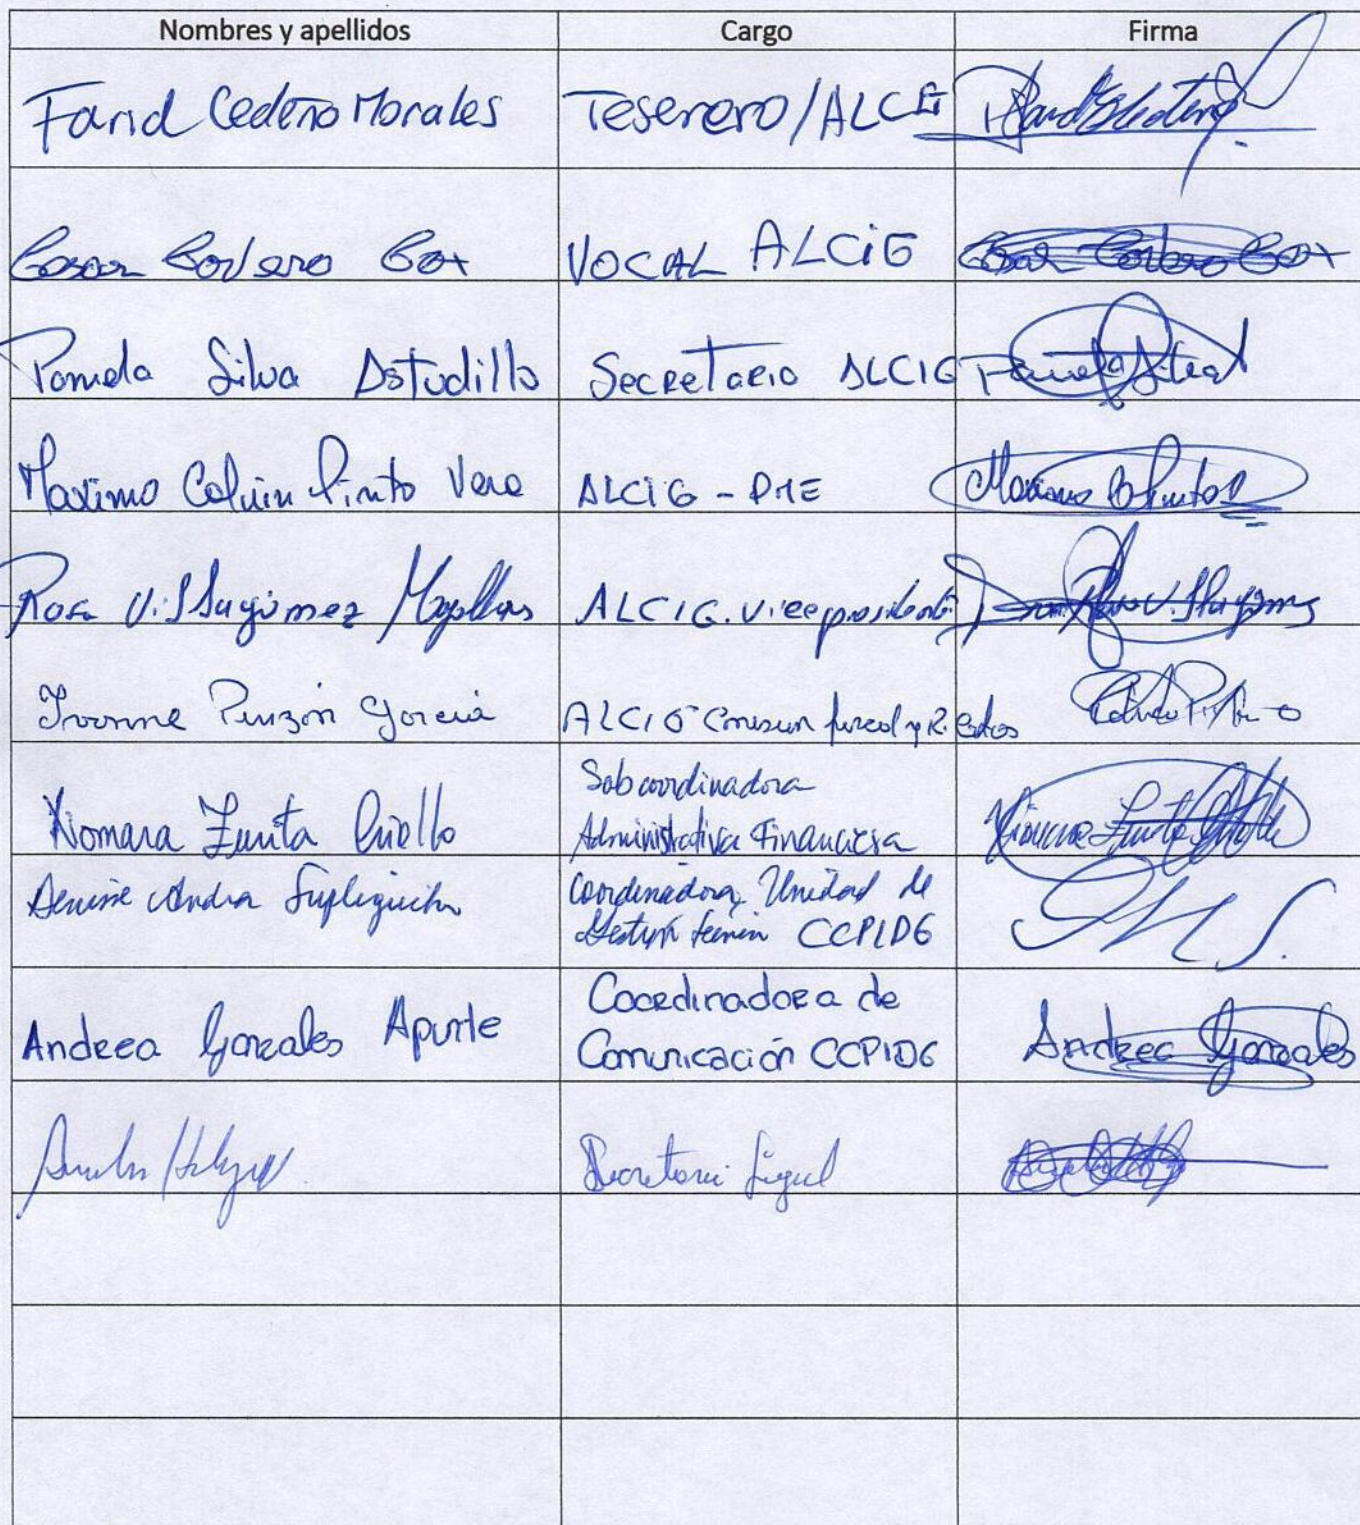 Nombres y apellidos Cargo Firma
Farid Cedeño Morales Teserero/ALCIG
Cesar Cordero Cox VOCAL ALCIG Cesar Cordero Cox
Pamela Silva Astudillo Secretario ALCIG Pamela Silva
Maximo Calvin Pinto Vera ALCIG - PME Maximo C Pinto
Rosa Villagómez ALCIG. Vicepresidente Rosa Villagomez
Ivonne Pinzón Garcia ALCIG
Xiomara Zurita Criollo Subcoordinadora
Administrativa Financiera Xiomara Zurita
Denisse Andrea Coordinadora, Unidad de
Gestión CCPIDG
Andrea Gonzales Apunte Coordinadora de
Comunicación CCPIDG Andrea Gonzales
Secretaria Legal